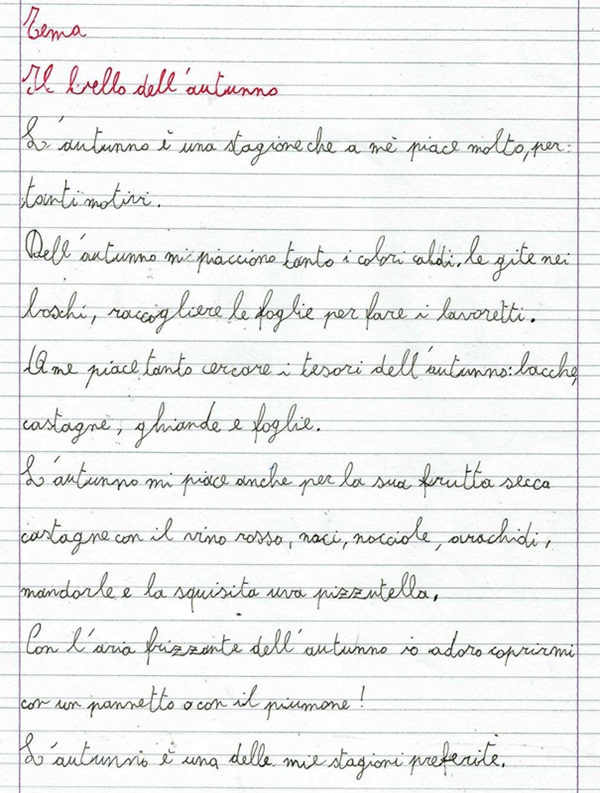 Tema
Il bello dell'autunno
L'autunno è una stagione che a mè piace molto, per
tanti motivi.
Dell'autunno mi piacciono tanto i colori caldi. le gite nei
boschi, raccogliere le foglie per fare i lavoretti.
A me piace tanto cercare i tesori dell'autunno: bacche,
castagne, ghiande e foglie.
L'autunno mi piace anche per la sua frutta secca
castagne con il vino rosso, noci, nocciole, arachidi,
mandorle e la squisita uva pizzutella.
Con l'aria frizzante dell'autunno io adoro coprirmi
con un pannetto o con il piumone!
L'autunno è una delle mie stagioni preferite.